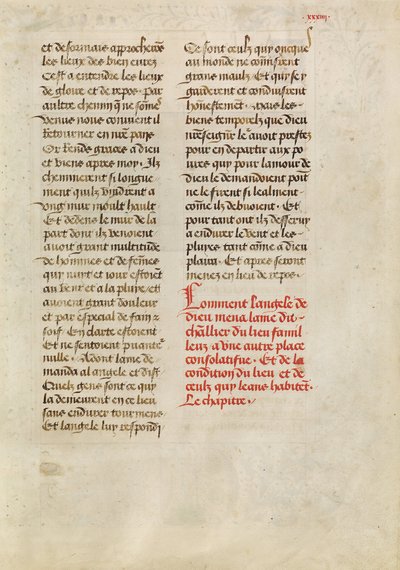 xxxiij
et desormais approcherōs
les lieux des bien eurez
Cest a entendre les lieux
de gloire et de repos. par
aultre chemin q̄ ne sōmes
venus nous convient il
retourner en nur̄e pays
Or rends graces a dieu
et viens apres moy. Ilz
cheminerent si longue-
ment quilz vindrent a
vng mur moult hault
Et dedens le mur de la
part dont ilz venoient
avoit grant multitude
de hommes et de fēmes
qui nuit et iour estoiēt
au vent et a la pluye. et
avoient grant douleur
et par especial de faim et
soif. En clarte estoient
Et ne sentoient puanteur
nulle. Adont lame de-
manda al angele et dist
Quelz gens sont ce qui
la demeurent en ce lieu
sans endurer tourmens
Et langele luy respondi
Ce sont ceulz quy oncques
au monde ne commirent
grans maulz. Et qui se y
garderent et conduirent
honnestement. Mais les-
biens temporelz que dieu
nur̄e seignr̄ le avoit prestez
pour en departir aux po-
vres quy pour lamour de
dieu le demandoient poīt
ne le firent si lealment
cōme ilz debvoient. Et
pour tant ont ilz desservy
a endurer le vent et les
pluyes tant cōme a dieu
plaira. Et apres seront
menez en lieu de repos.
Comment langele de
dieu mena lame du
chĺlier du lieu famil
leux a vne autre place
consolatifue. Et de la
condition du lieu et de
ceulz quy leans habitēt.
Le chapitre.